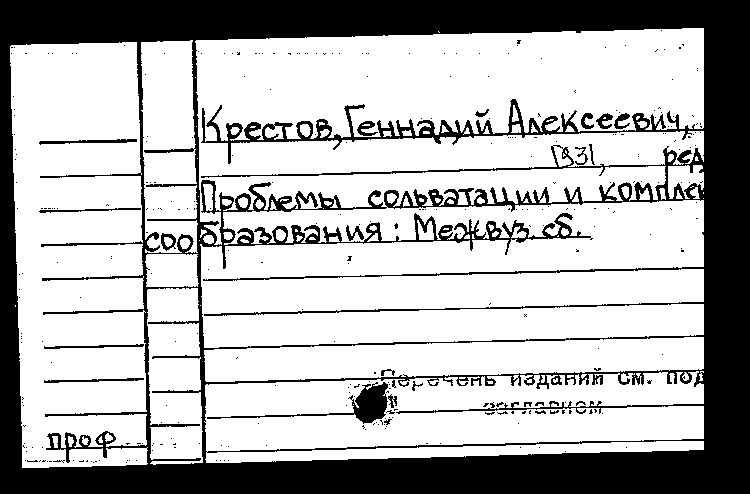 Крестов, Геннадий Алексеевич,
1931, ред
Проблемы сольватации и комплек
сообразования: Межвуз. сб.
Перечень изданий см. под
заглавием
проф